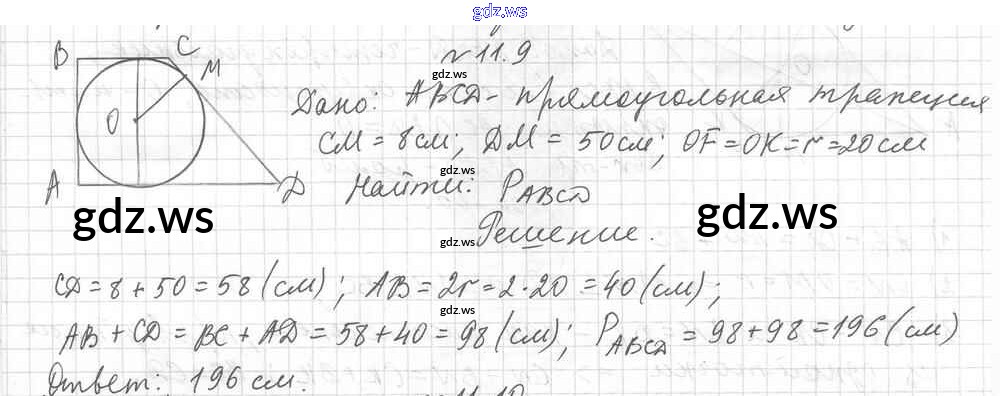 gdz.ws
B C
M
O
A D
№ 11.9
gdz.ws
Дано: ABCD - прямоугольная трапеция
CM = 8 см; DM = 50 см; OF = OK = r = 20 см
gdz.ws
Найти: P_ABCD
gdz.ws gdz.ws
gdz.ws
Решение.
CD = 8 + 50 = 58 (см); AB = 2r = 2 · 20 = 40 (см);
gdz.ws
AB + CD = BC + AD = 58 + 40 = 98 (см); P_ABCD = 98 + 98 = 196 (см)
Ответ: 196 см.